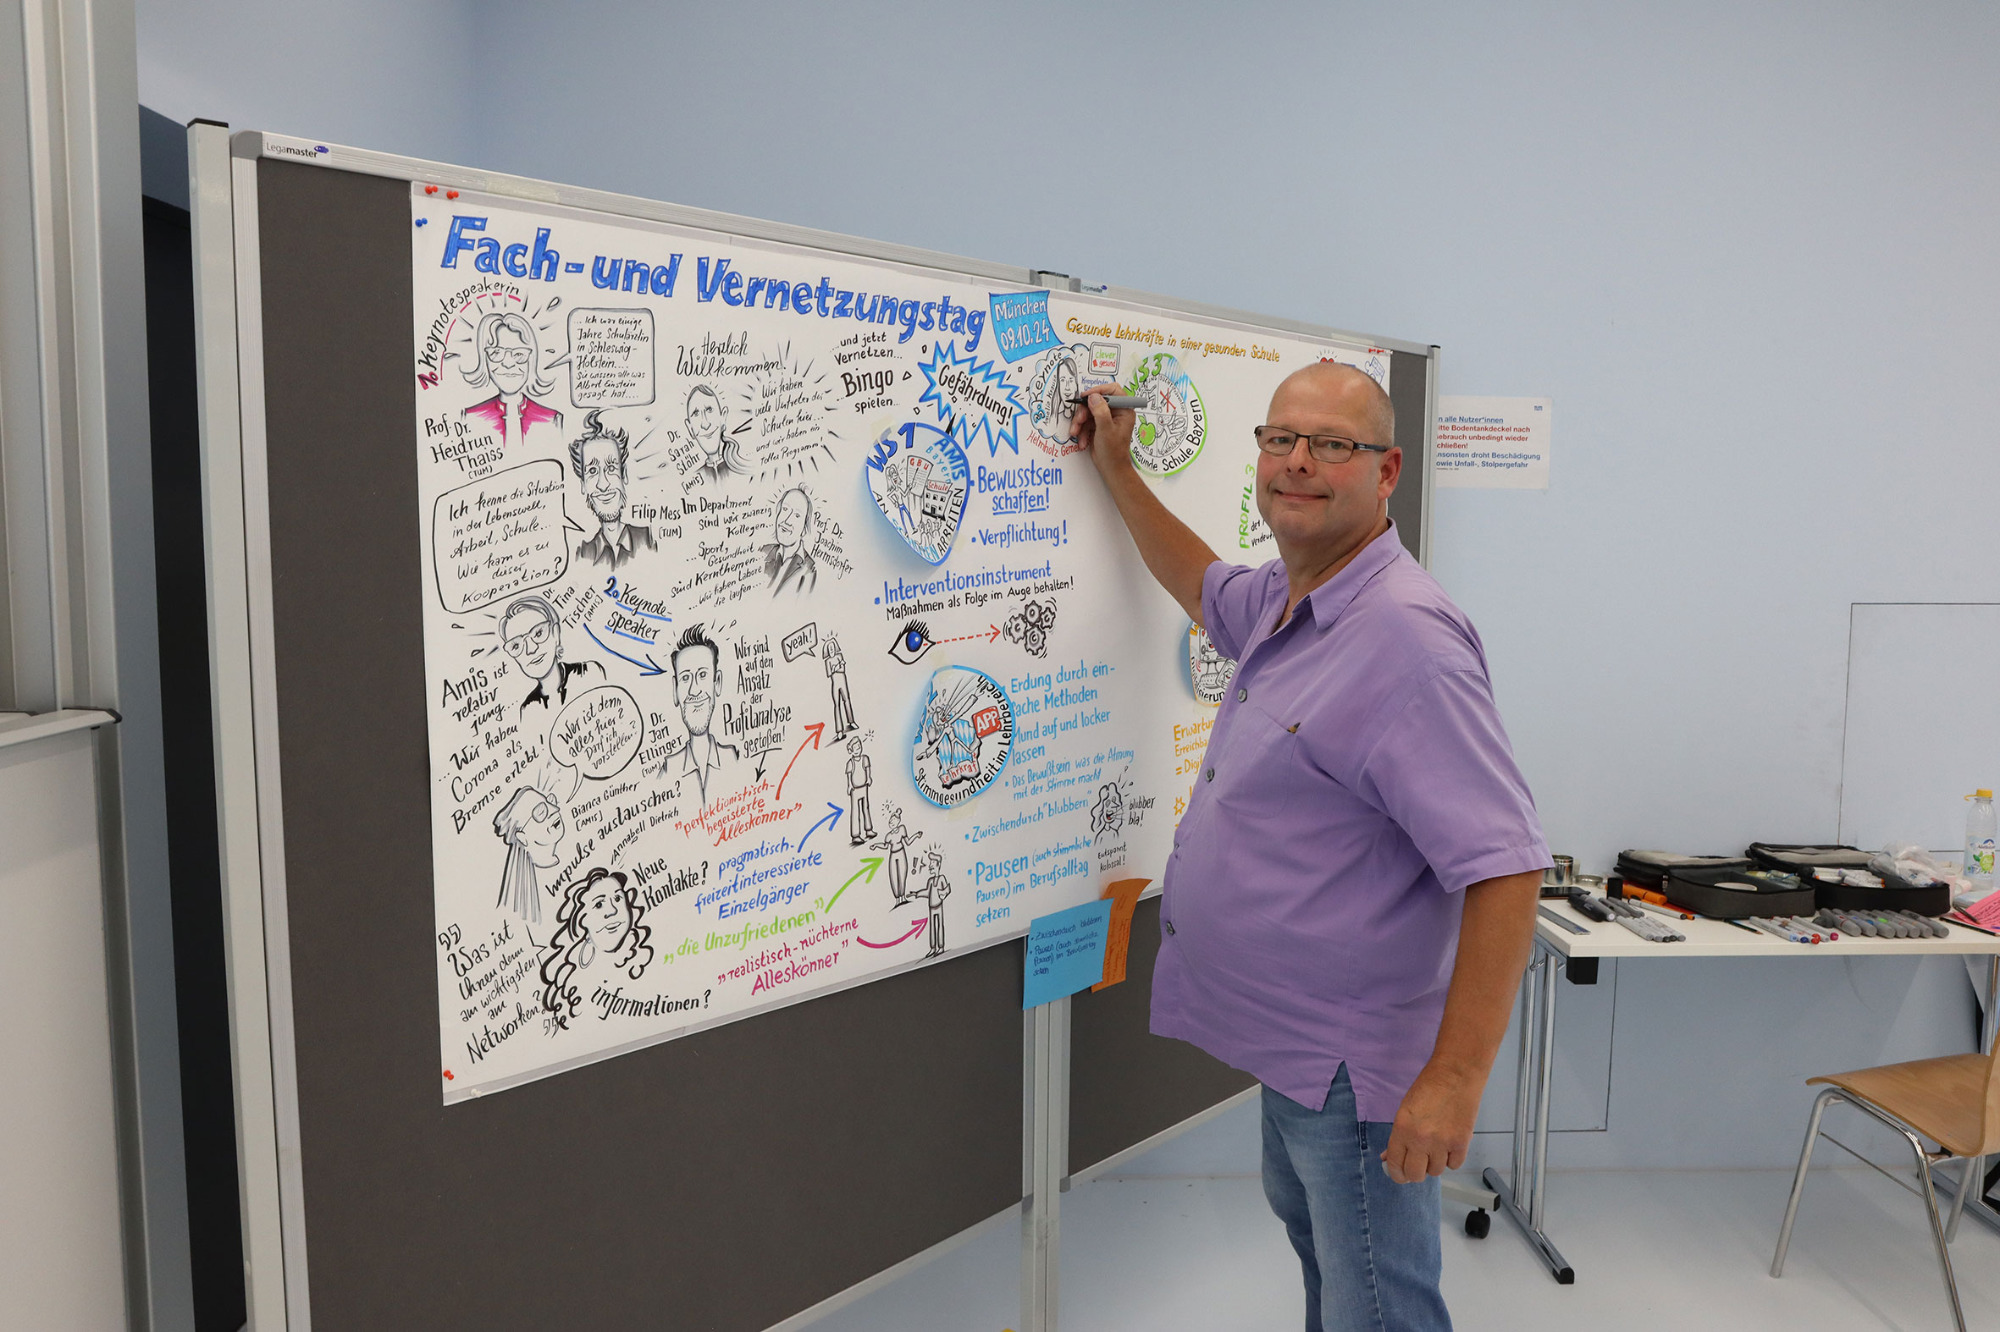 Legamaster
Fach- und Vernetzungstag
München
09.10.24
1. Keynotespeakerin
Prof. Dr.
Heidrun
Thaiss
(TUM)
...Ich war einige
Jahre Schulärztin
in Schleswig-
Holstein....
Sie wissen alle was
Albert Einstein
gesagt hat....
Herzlich
Willkommen!
Wir haben
viele Vertreter der
Schulen hier...
und wir haben ein
tolles Programm!
Dr.
Sarah
Stöhr
[AMIS]
...und jetzt
Vernetzen...
Bingo
spielen...
Gefährdung!
Ich kenne die Situation
in der Lebenswelt,
Arbeit, Schule...
Wie kam es zu
dieser
Kooperation?
Filip Mess
[TUM]
Im Department
sind wir zwanzig
Kollegen...
...Sport,
Gesundheit
sind Kernthemen...
...Wir haben Labore
die laufen...
Prof. Dr.
Joachim
Hermsdörfer
Dr.
Tina
Tischer
[AMIS]
2. Keynote-
speaker
Amis ist
relativ
jung...
...Wir haben
Corona als
Bremse erlebt!
Wer ist denn
alles hier?
Darf ich
vorstellen?
Dr.
Jan
Ellinger
[TUM]
Wir sind
auf den
Ansatz
der
Profilanalyse
gestoßen!
yeah!
Bianca Günther
[AMIS]
Impulse austauschen?
Annabell Dietrich
Neue
Kontakte?
Was ist
Ihnen denn
am wichtigsten
am
Networken?
informationen?
"perfektionistisch-
begeisterte
Alleskönner"
pragmatisch-
freizeitinteressierte
Einzelgänger
"die Unzufriedenen"
"realistisch-nüchterne
Alleskönner"
WS 1
AMIS
Bayern
GBU
Schule
ARBEITEN
• Bewusstsein
schaffen!
• Verpflichtung!
• Interventionsinstrument
Maßnahmen als Folge im Auge behalten!
APP
Lehrkraft
Stimmgesundheit im Lehrbereich
Erdung durch ein-
fache Methoden
Mund auf und locker
lassen
• Das Bewußtsein was die Atmung
mit der Stimme macht
• Zwischendurch "blubbern"
blubber
bla!
Entspannt
kolossal!
• Pausen (auch stimmliche
Pausen) im Berufsalltag
setzen
• Zwischendurch blubbern
• Pausen (auch stimmliche
Pausen) im Berufsalltag
setzen
Keynote
clever
gesund
Helmholz
Gesunde Lehrkräfte in einer gesunden Schule
WS 3
gesunde Schule Bayern
PROFIL 3
= Digi
n alle Nutzer*innen
itte Bodentankdeckel nach
ebrauch unbedingt wieder
chließen!
nsonsten droht Beschädigung
owie Unfall-, Stolpergefahr